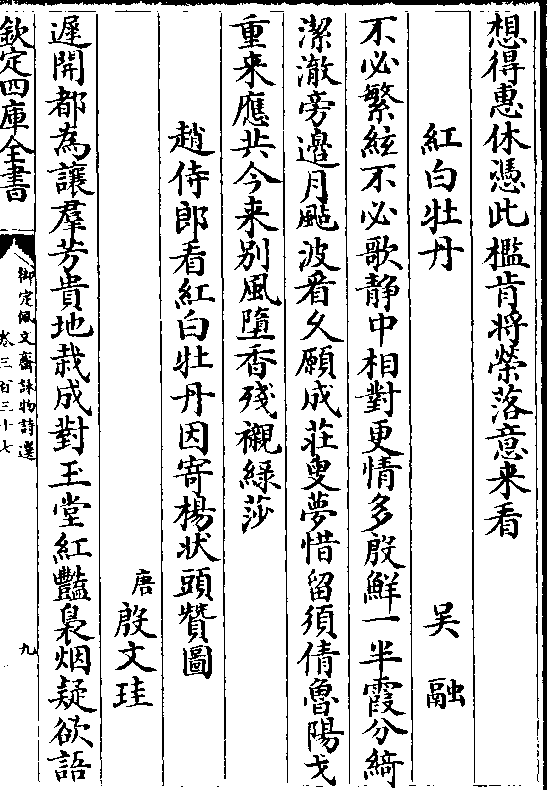 想得惠休憑此檻肯將榮落意来看
紅白牡丹　吴融
不必繁絃不必歌静中相對更情多殷鮮一半霞分綺
潔澈旁邉月颭波㸔久願成荘叟夢惜留須倩魯陽戈
重来應共今来别風墮香殘襯緑莎
趙侍郎看紅白牡丹因寄楊状頭贊圖
唐殷文珪
遲開都為讓羣芳貴地栽成對玉堂紅豔裊烟疑欲語
欽定四庫全書
御定佩文齋詠物詩選
卷三百三十七
九